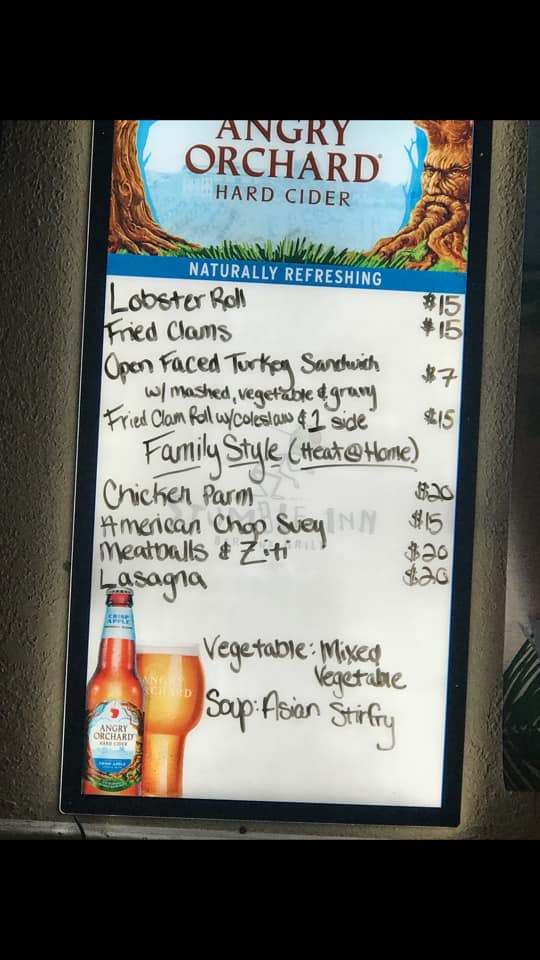 ANGRY
ORCHARD
HARD CIDER
NATURALLY REFRESHING
Lobster Roll $15
Fried Clams $15
Open Faced Turkey Sandwich $7
w/ mashed, vegetable & gravy
Fried Clam Roll w/coleslaw & 1 side $15
Family Style (Heat@Home)
Chicken Parm $20
STUMBLE INN
American Chop Suey $15
Meatballs & Ziti $20
Lasagna $20
CRISP
APPLE
Vegetable: Mixed
Vegetable
ANGRY
ORCHARD
Soup: Asian Stirfry
ANGRY
ORCHARD
HARD CIDER
CRISP APPLE